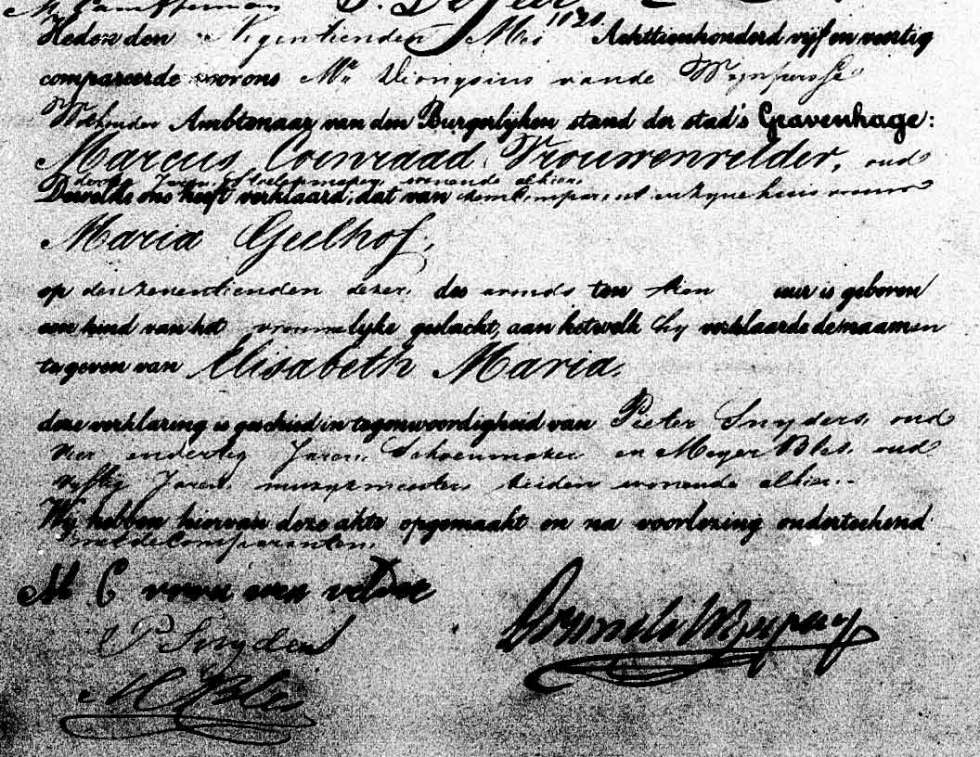 Heden den Negentienden Mei 1020. Achttienhonderd vijf en veertig
compareerde voor ons Mr. Dionysius van de Wynpersse
Wethouder Ambtenaar van den Burgerlijken stand der stad 's Gravenhage:
Marcus Coenraad Vrouwenvelder, oud
Jaren, wonende alhier,
Dewelke ons heeft verklaard, dat van hem Comparant en zyne huisvrouw
Maria Geelhof,
op den zeventienden dezer, des avonds ten tien uur is geboren
een kind van het vrouwelyke geslacht, aan hetwelk hy verklaarde de naamen
te geven van Elisabeth Maria.
deze verklaring is geschied in tegenwoordigheid van Pieter Snyders, oud
vier en dertig Jaren, Schoenmaker en Meyer Bles, oud
vyftig Jaren, muzykmeester, beiden wonende alhier.
Wij hebben hiervan deze akte opgemaakt en na voorlezing onderteekend
met de Comparanten.
M C vrouwenvelder
P Snyders
M Bles